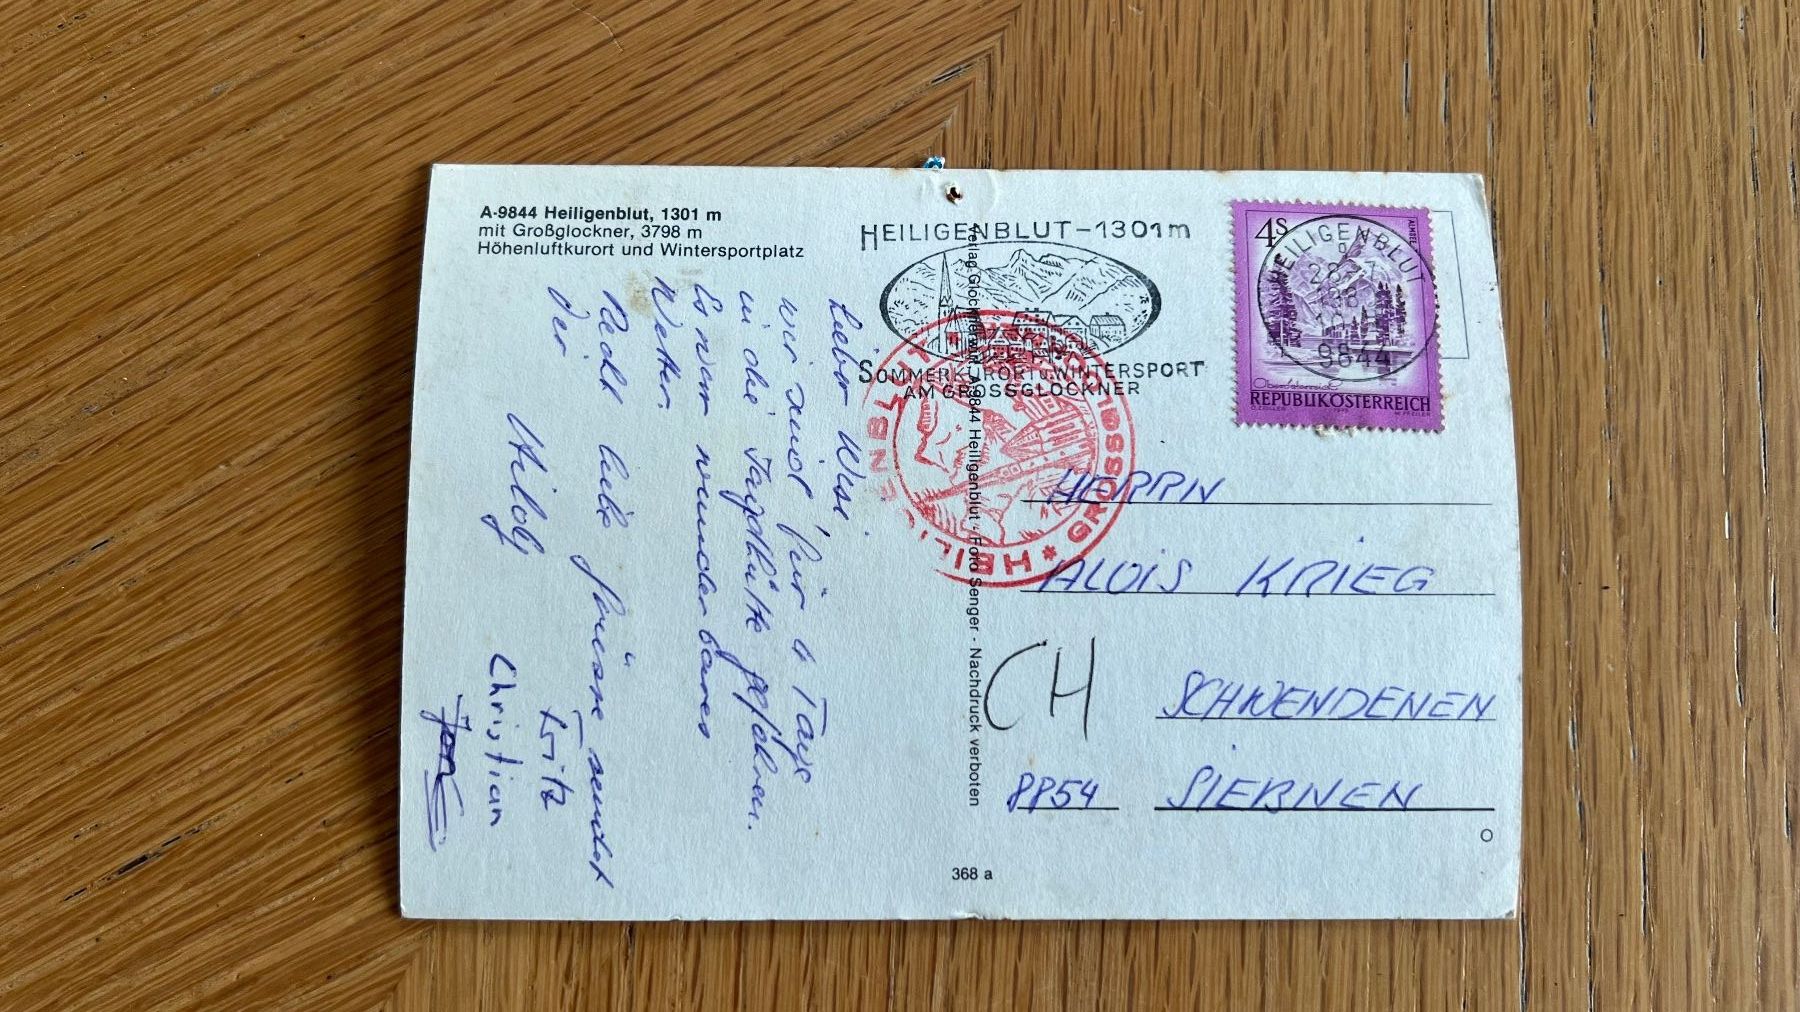 A-9844 Heiligenblut, 1301 m
mit Großglockner, 3798 m
Höhenluftkurort und Wintersportplatz
Lieber Wisi,
wir sind für 4 Tage
in die Jagdhütte gefahren.
Es war wunderbares
Wetter.
Recht liebe Grüsse sendet
Dir
Fritz
Christian
Verlag Glocknerwirt, A-9844 Heiligenblut - Foto Senger - Nachdruck verboten
368 a
HEILIGENBLUT-1301m
SOMMERKURORT u. WINTERSPORT
AM GROSSGLOCKNER
4S
Oberösterreich
REPUBLIK ÖSTERREICH
HEILIGENBLUT
9844
HEILIGENBLUT
GROSSGL
HERRN
ALOIS KRIEG
CH
SCHWENDENEN
8854 SIEBNEN